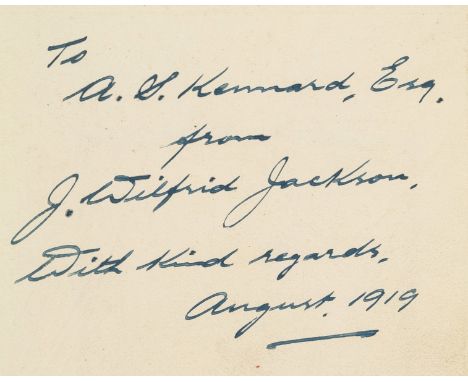 To
A. S. Kennard, Esq.
from
J. Wilfrid Jackson,
With kind regards,
August. 1919